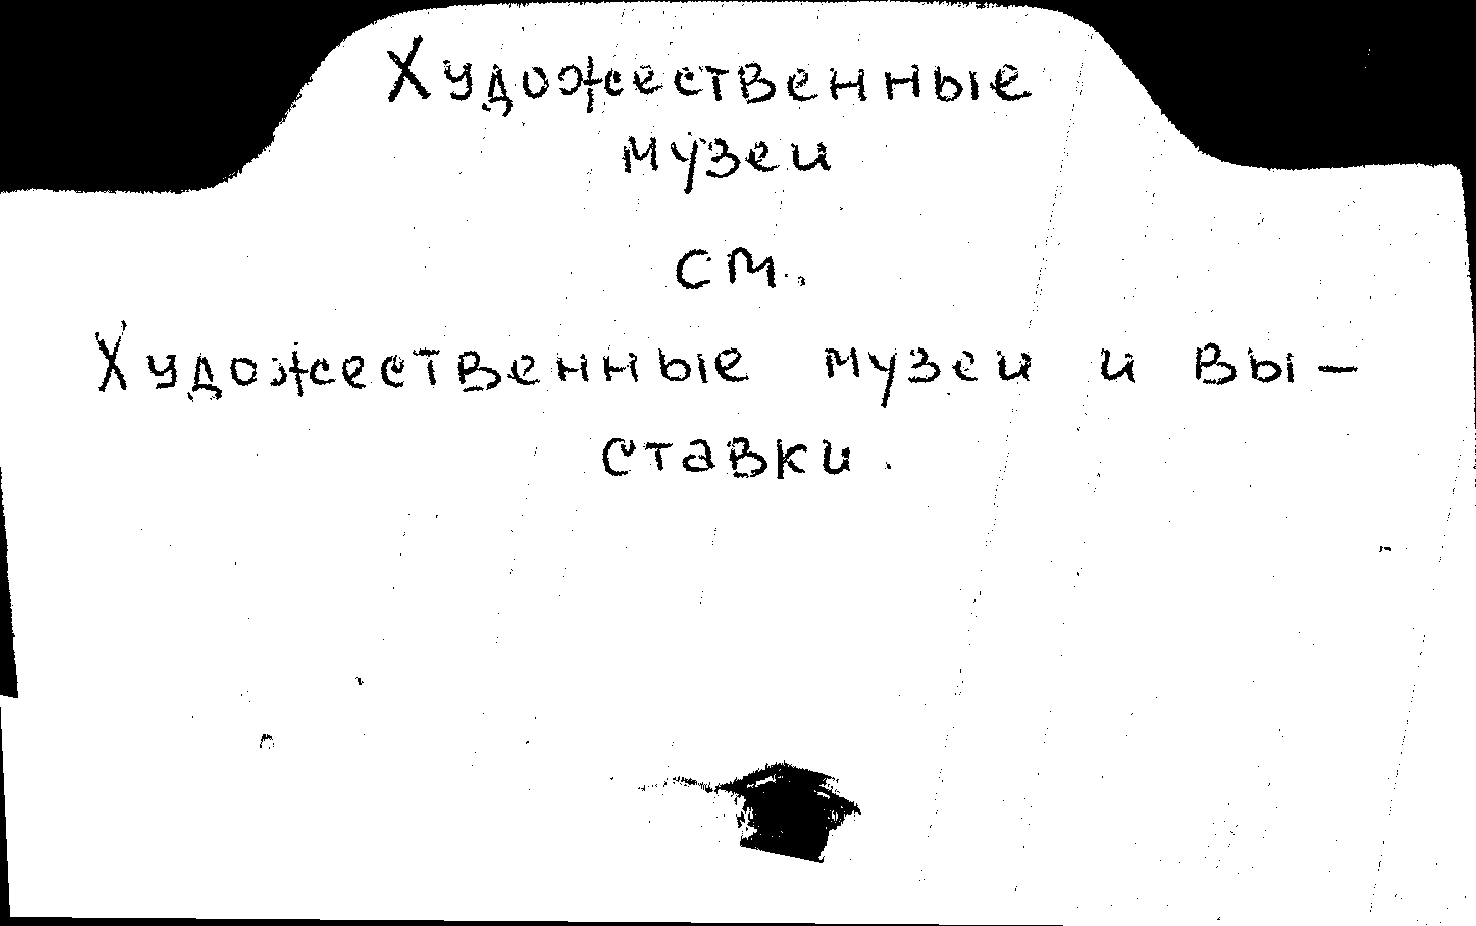 Художественные
музеи
см.
Художественные музеи и вы-
ставки.